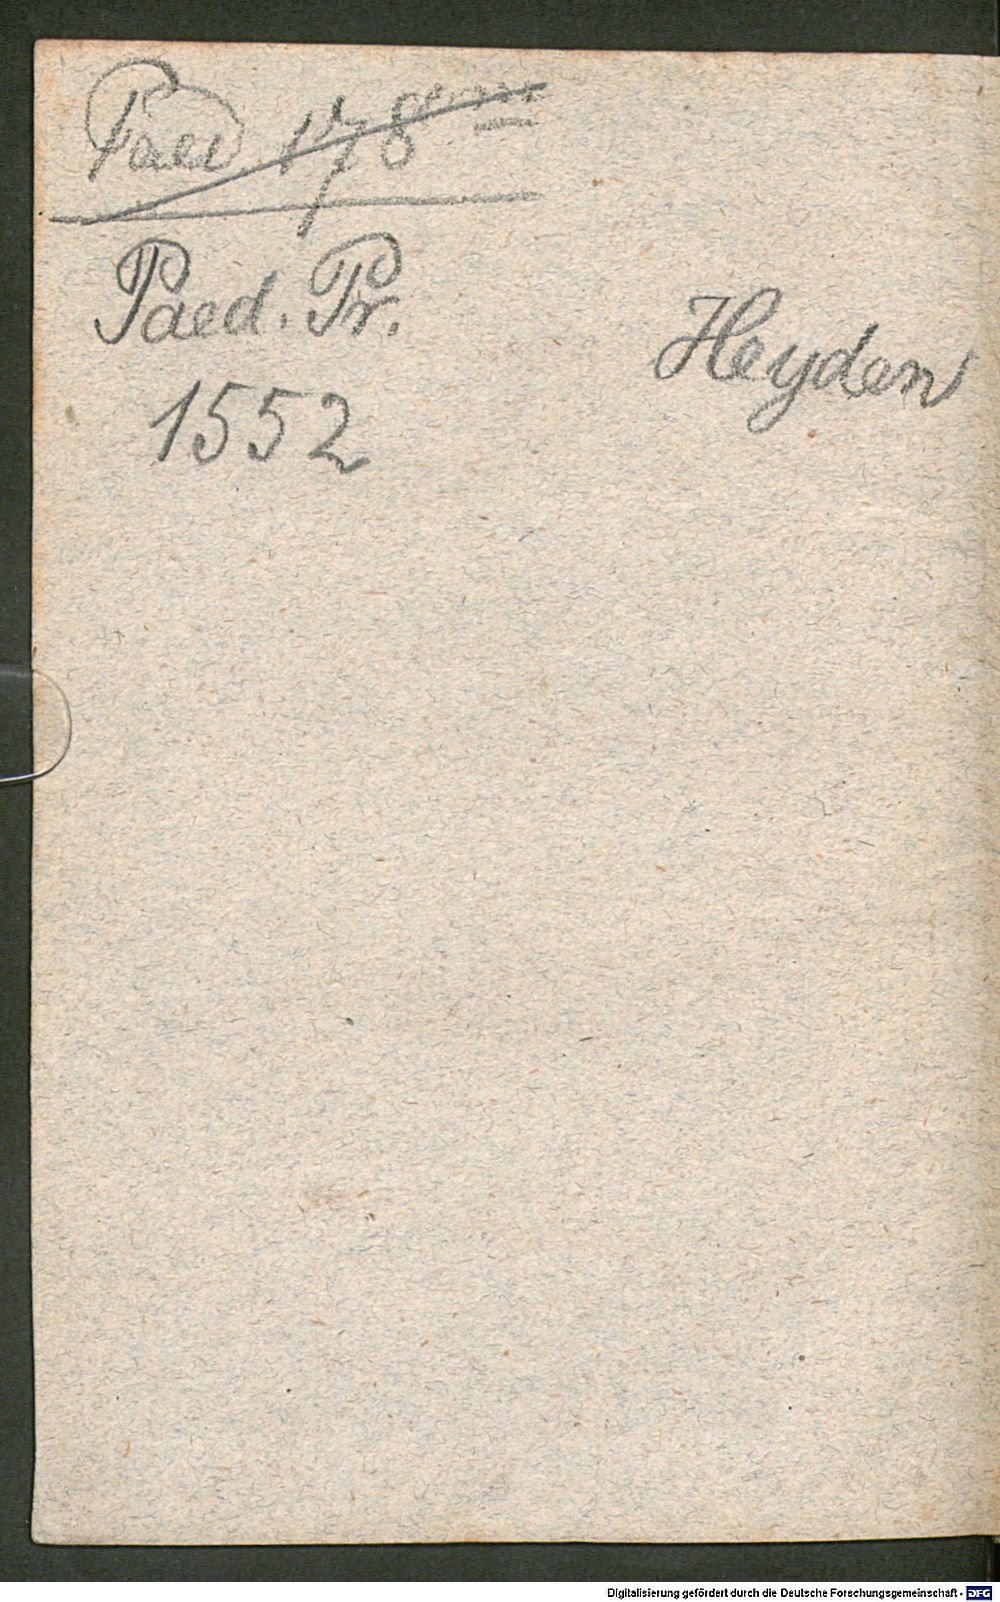 Paed 178
Paed. Pr.
1552
Heyden
Digitalisierung gefördert durch die Deutsche Forschungsgemeinschaft - DFG